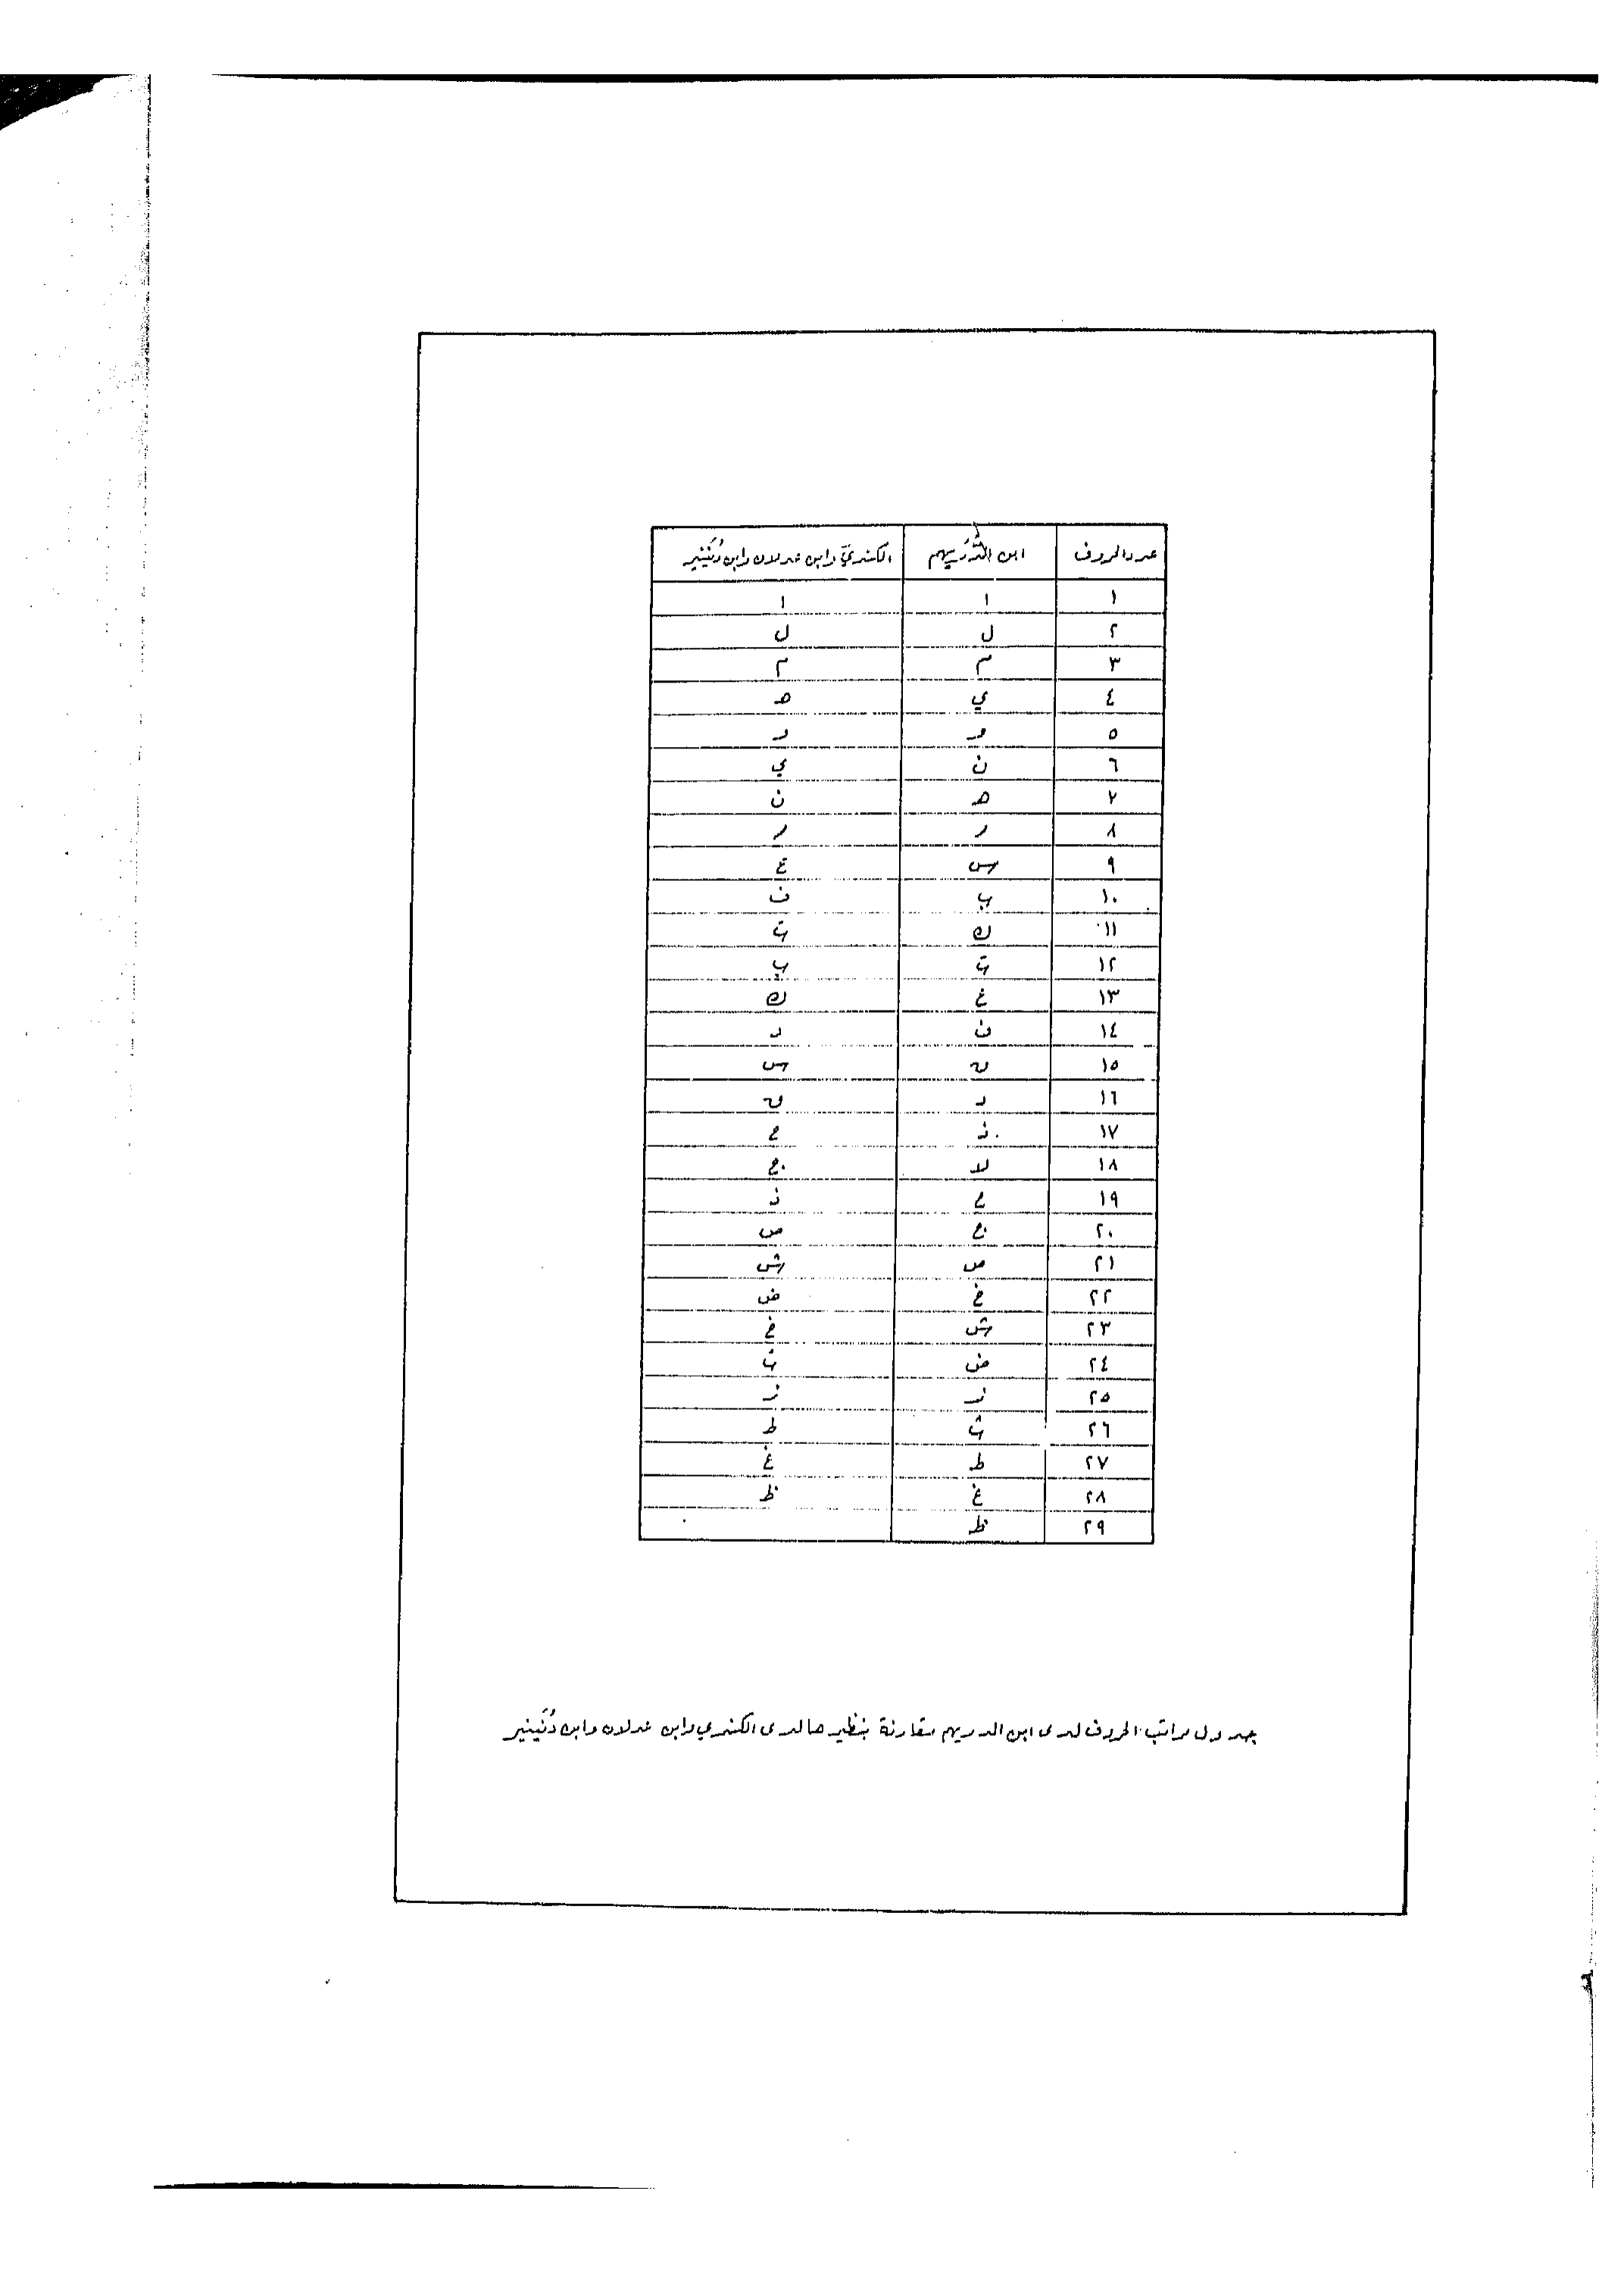 عدد الحروف ابن الدُّرَيهم الكنديّ وابن عدلان وابن دُنَينير
١ ا ا
٢ ل ل
٣ م م
٤ ي هـ
٥ و و
٦ ن ي
٧ هـ ن
٨ ر ر
٩ س ع
١٠ ب ف
١١ ك ت
١٢ ت ب
١٣ ع ك
١٤ ف د
١٥ ق س
١٦ د ق
١٧ ذ ح
١٨ لا ج
١٩ ح ذ
٢٠ ج ص
٢١ ص ش
٢٢ خ ض
٢٣ ش خ
٢٤ ض ث
٢٥ ز ز
٢٦ ث ط
٢٧ ط غ
٢٨ غ ظ
٢٩ ظ
جدول مراتب الحروف لدى ابن الدريهم مقارنة بنظيرها لدى الكندي وابن عدلان وابن دُنَينير